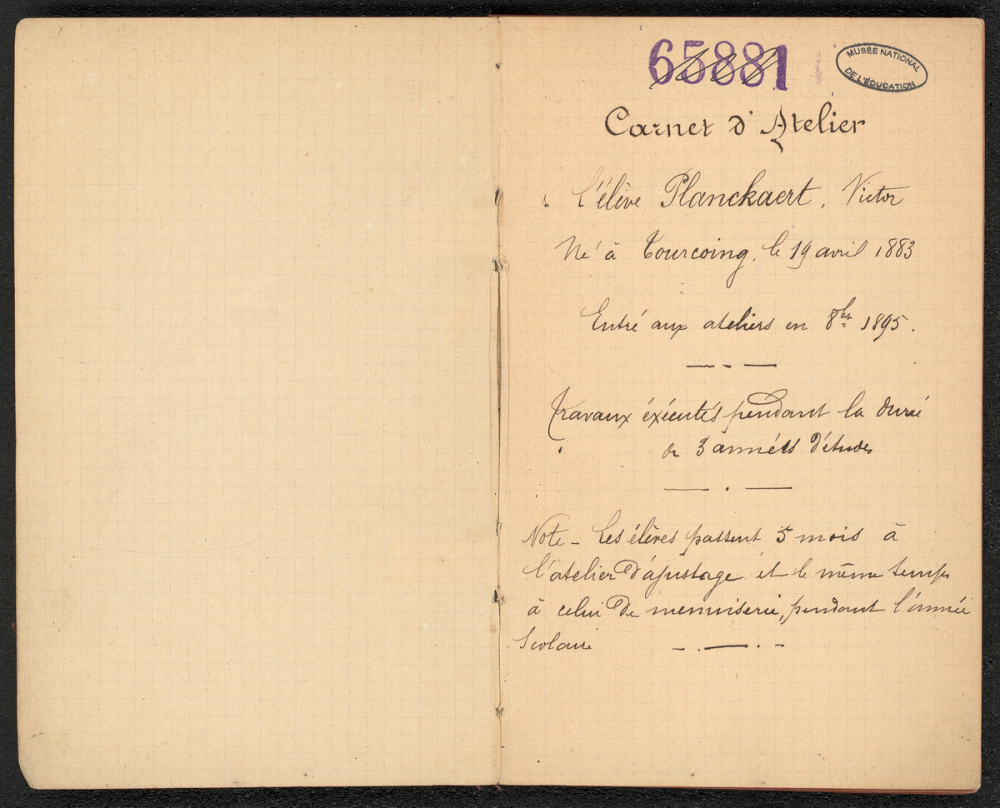 65881
MUSÉE NATIONAL
DE L'ÉDUCATION
Carnet d'Atelier
L'élève Planckaert, Victor
Né à Tourcoing, le 19 avril 1883
Entré aux ateliers en 8bre 1895.
Travaux éxécutés pendant la durée
de 3 années d'études
Note - Les élèves passent 5 mois à
l'atelier d'ajustage et le même temps
à celui de menuiserie, pendant l'année
Scolaire